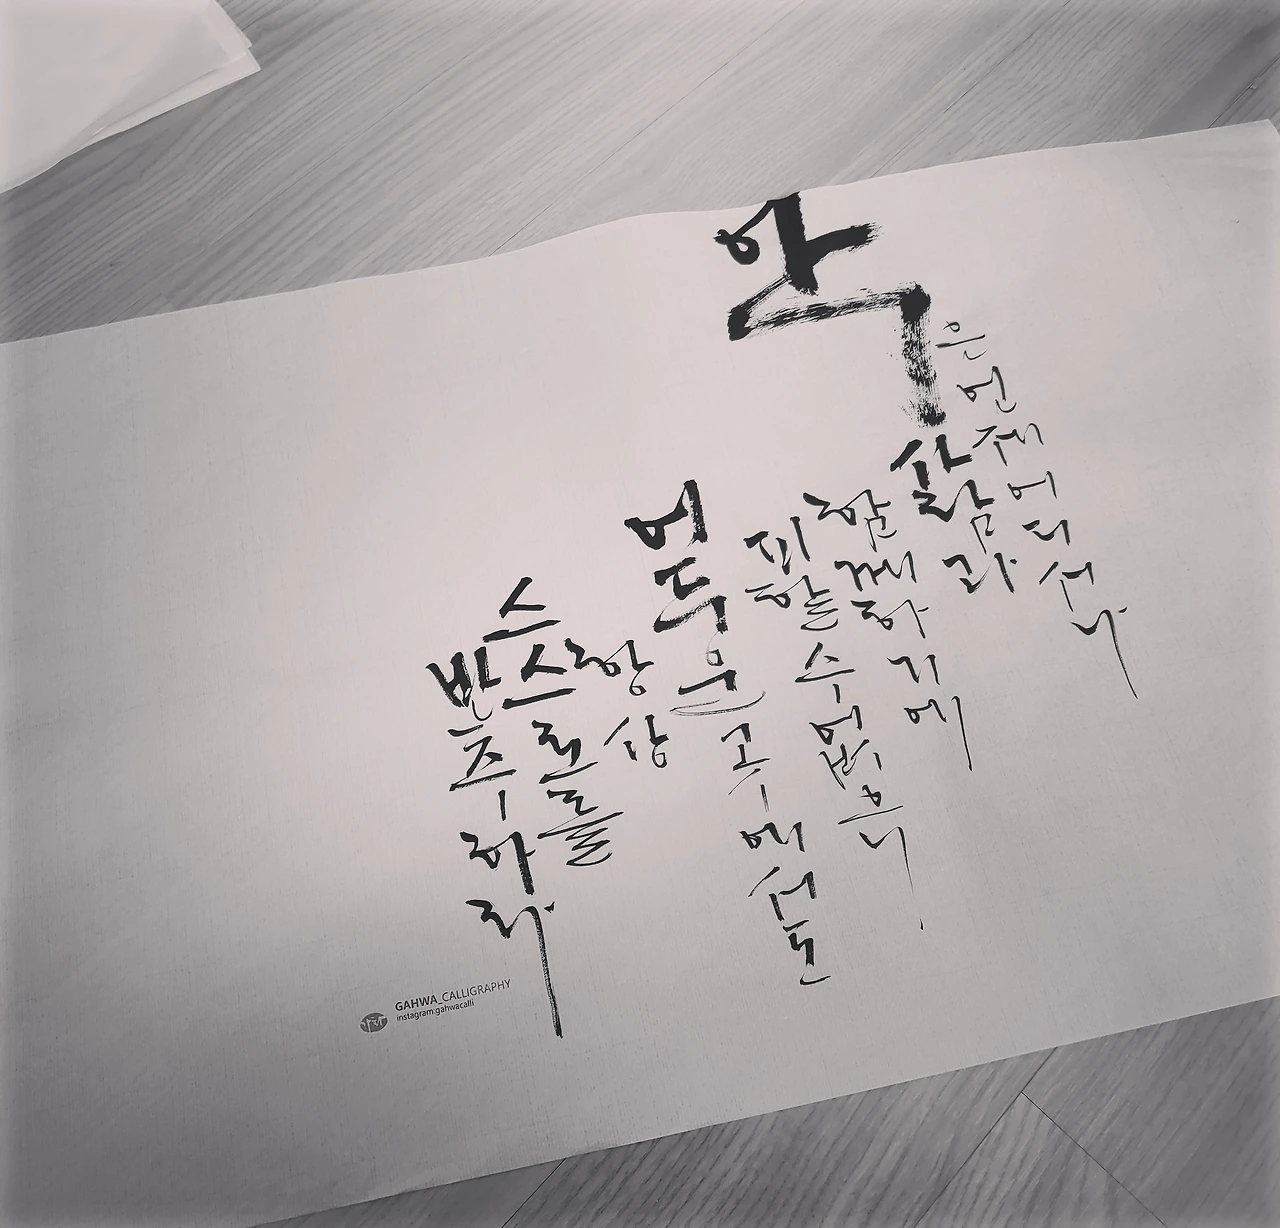 악은 언제 어디서나
사람과
함께하기에
피할 수 없으니
어두운 곳에서도
항상
스스로를
반추하라
GAHWA_CALLIGRAPHY
instagram.gahwacalli